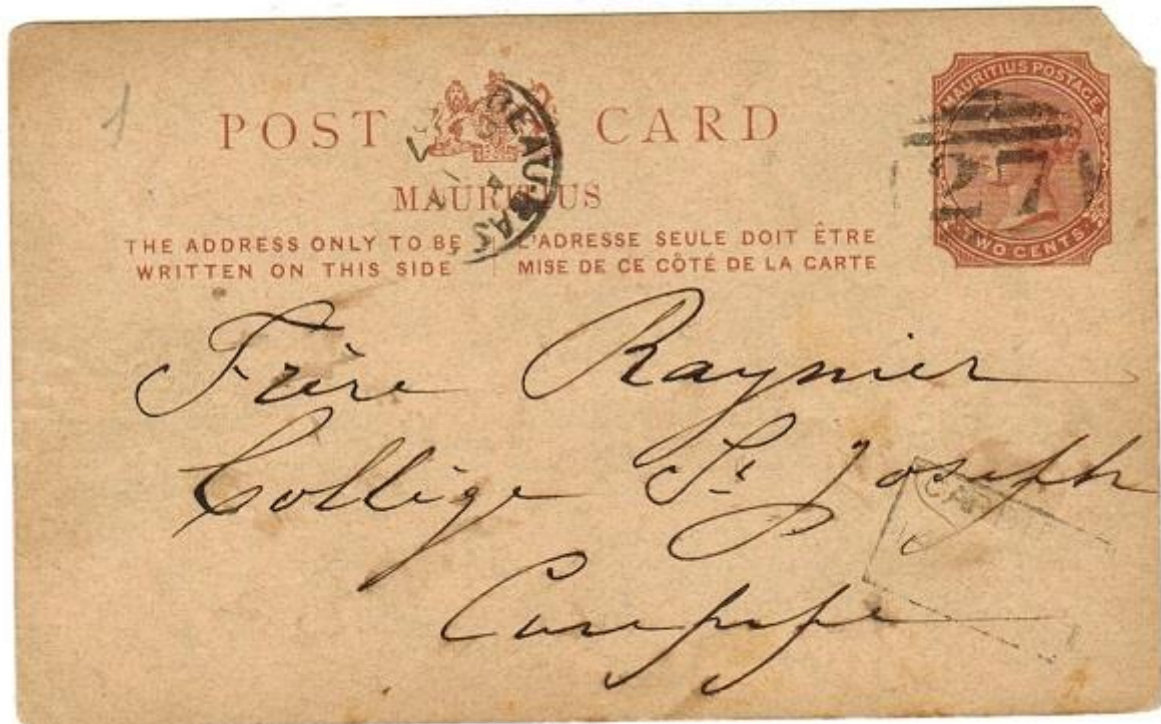 1
POST CARD
MAURITIUS
THE ADDRESS ONLY TO BE WRITTEN ON THIS SIDE
L'ADRESSE SEULE DOIT ÊTRE MISE DE CE CÔTÉ DE LA CARTE
MAURITIUS POSTAGE
TWO CENTS
27
BEAU BAS
Frère Raynier
Collège St. Joseph
Curepipe